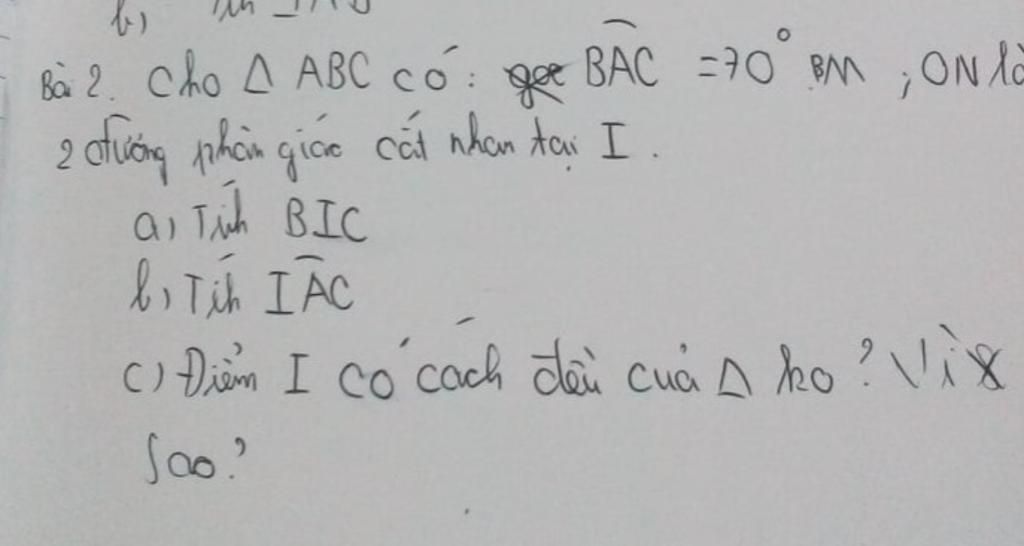 b,
Bài 2. Cho Δ ABC có: BAC = 70° BM ; ON là
2 đường phân giác cắt nhau tại I.
a, Tính BIC
b, Tính IAC
c) Điểm I có cách đều của Δ ko? Vì
sao?